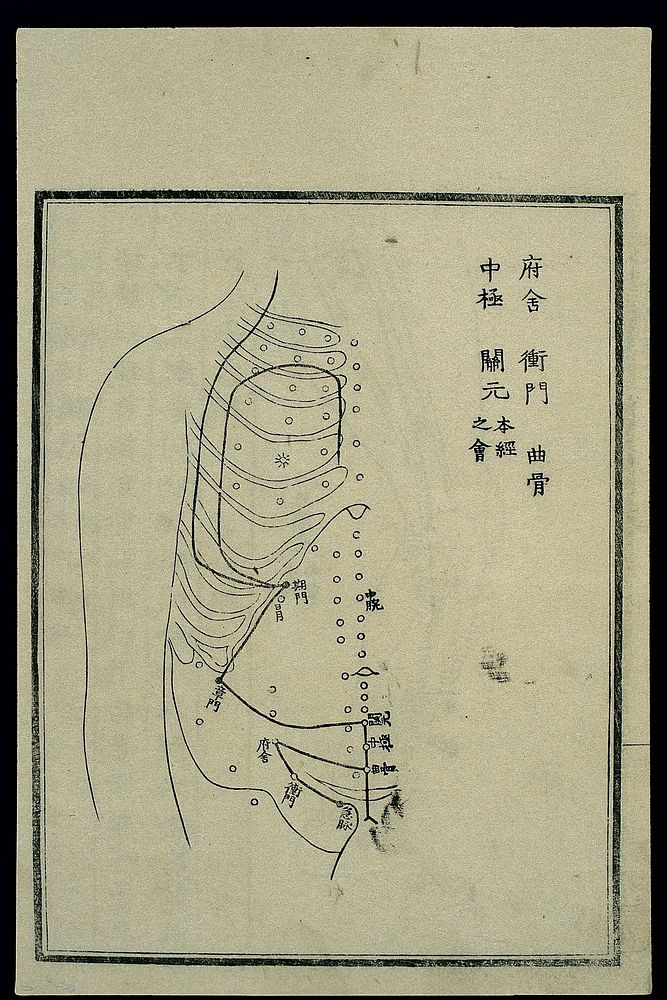 府舍　衝門　曲骨
中極　關元
本經
之會
期門
胃
中脘
章門
關元
中極
曲骨
府舍
衝門
急脈